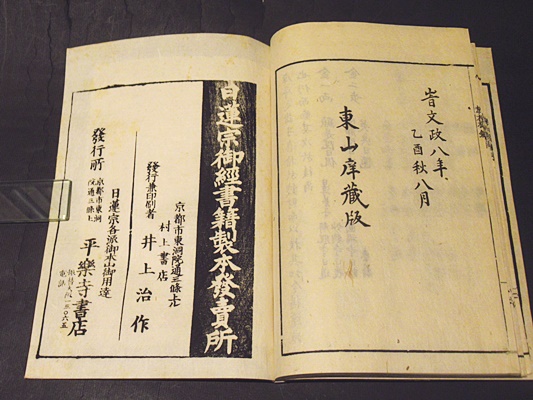 旹文政八年
乙酉秋八月
東山庠藏版
日蓮宗御經書籍製本發賣所
京都市東洞院通三條上ル
村上書店
發行兼印刷者 井上治作
日蓮宗各派御本山御用達
發行所
京都市東洞
院通三條上
平樂寺書店